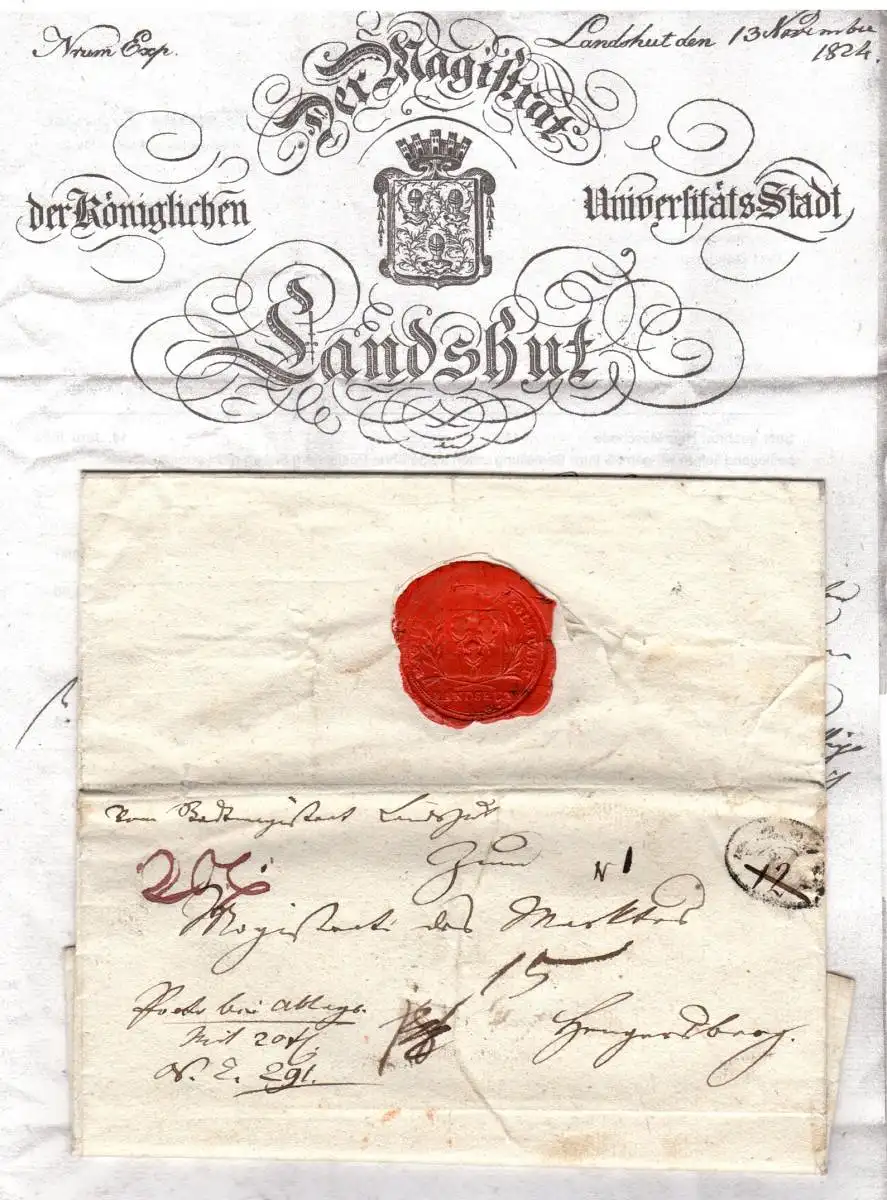 Nrum Exp.
Landshut den 13 November
1824.
Der Magistrat
der Königlichen
Universitäts-Stadt
Landshut
LANDSHUT
vom Stadtmagistrat Landshut
Zum
N 1
12
Magistrat des Marktes
15
Hengersberg.
Mit 20 fl.
N. E. 291.